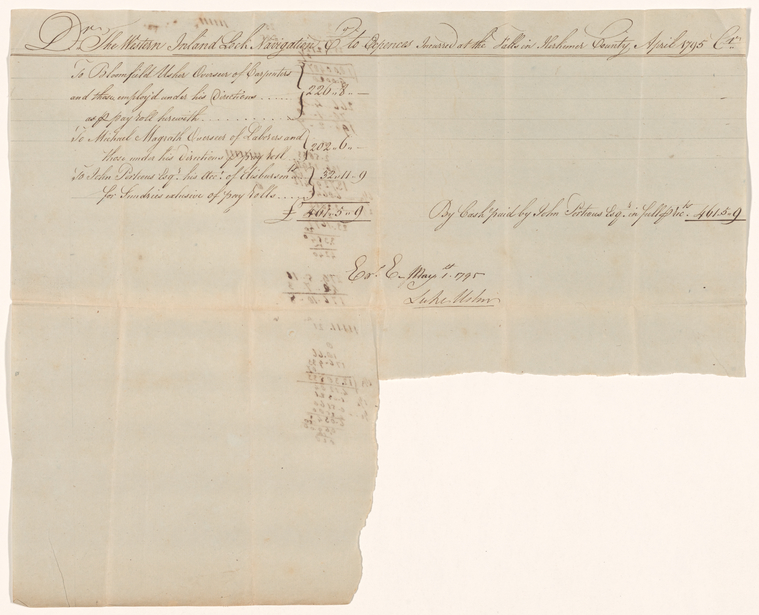 Dr. The Western Inland Lock Navigation Co. to Expences Incurred at the Falls in Herkemer County April 1795 Cr.
To Bloomfield Usher Overseer of Carpenters
and those employ'd under his Directions .... 226 " 8 " —
as pr pay roll herewith ..........
To Michael Magrath Overseer of Laborers and
those under his Directions pr pay roll .. 202 " 6 " —
To John Porteous Esqr. his Acct. of disbursemts. 32 " 11 " 9
for Sundries exlusive of pay rolls ....
£ 461 " 5 " 9
By Cash paid by John Porteous Esqr. in full pr 461 " 5 " 9
Er. E. May 1st. 1795
Luke Usher